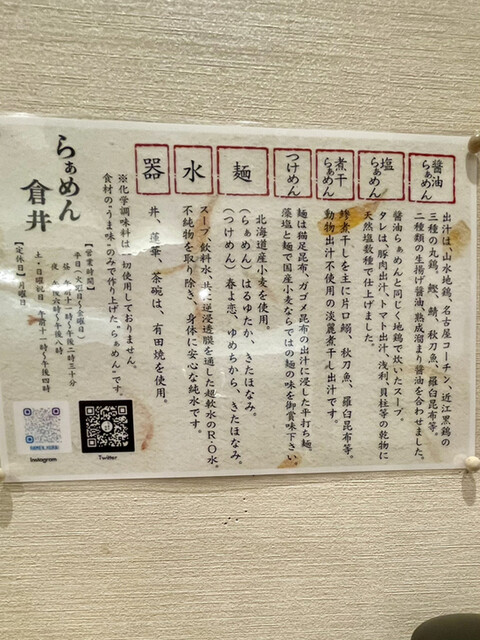 醤油らぁめん
出汁は、山水地鶏、名古屋コーチン、近江黒鶏の
三種の丸鶏、鰹、鯖、秋刀魚、羅臼昆布等。
二種類の生揚げ醤油、熟成溜まり醤油を合わせました。
塩らぁめん
醤油らぁめんと同じく地鶏で炊いたスープ。
タレは、豚肉出汁、トマト出汁、浅利、貝柱等の乾物に
天然塩数種で仕上げました。
煮干らぁめん
鯵煮干しを主に片口鰯、秋刀魚、羅臼昆布等。
動物出汁不使用の淡麗煮干し出汁です。
つけめん
麺は猫足昆布、ガゴメ昆布の出汁に浸した平打ち麺。
藻塩と麺で国産小麦ならではの麺の味を御賞味下さい。
麺
北海道産小麦を使用。
(らぁめん)はるゆたか、きたほなみ。
(つけめん)春よ恋、ゆめちから、きたほなみ。
水
スープ、飲料水、共に逆浸透膜を通した超軟水のR.O水。
不純物を取り除き、身体に安心な純水です。
器
丼、蓮華、茶碗は、有田焼を使用。
※化学調味料は一切使用しておりません。
食材の“うま味”のみで作り上げた“らぁめん”です。
らぁめん 倉井
【営業時間】
平日(火曜日〜金曜日)
昼 午前十一時〜午後二時三十分
夜 午後六時〜午後八時
土・日曜祝日 午前十一時〜午後四時
【定休日】月曜日
Twitter
RAMEN_KURAI
Instagram